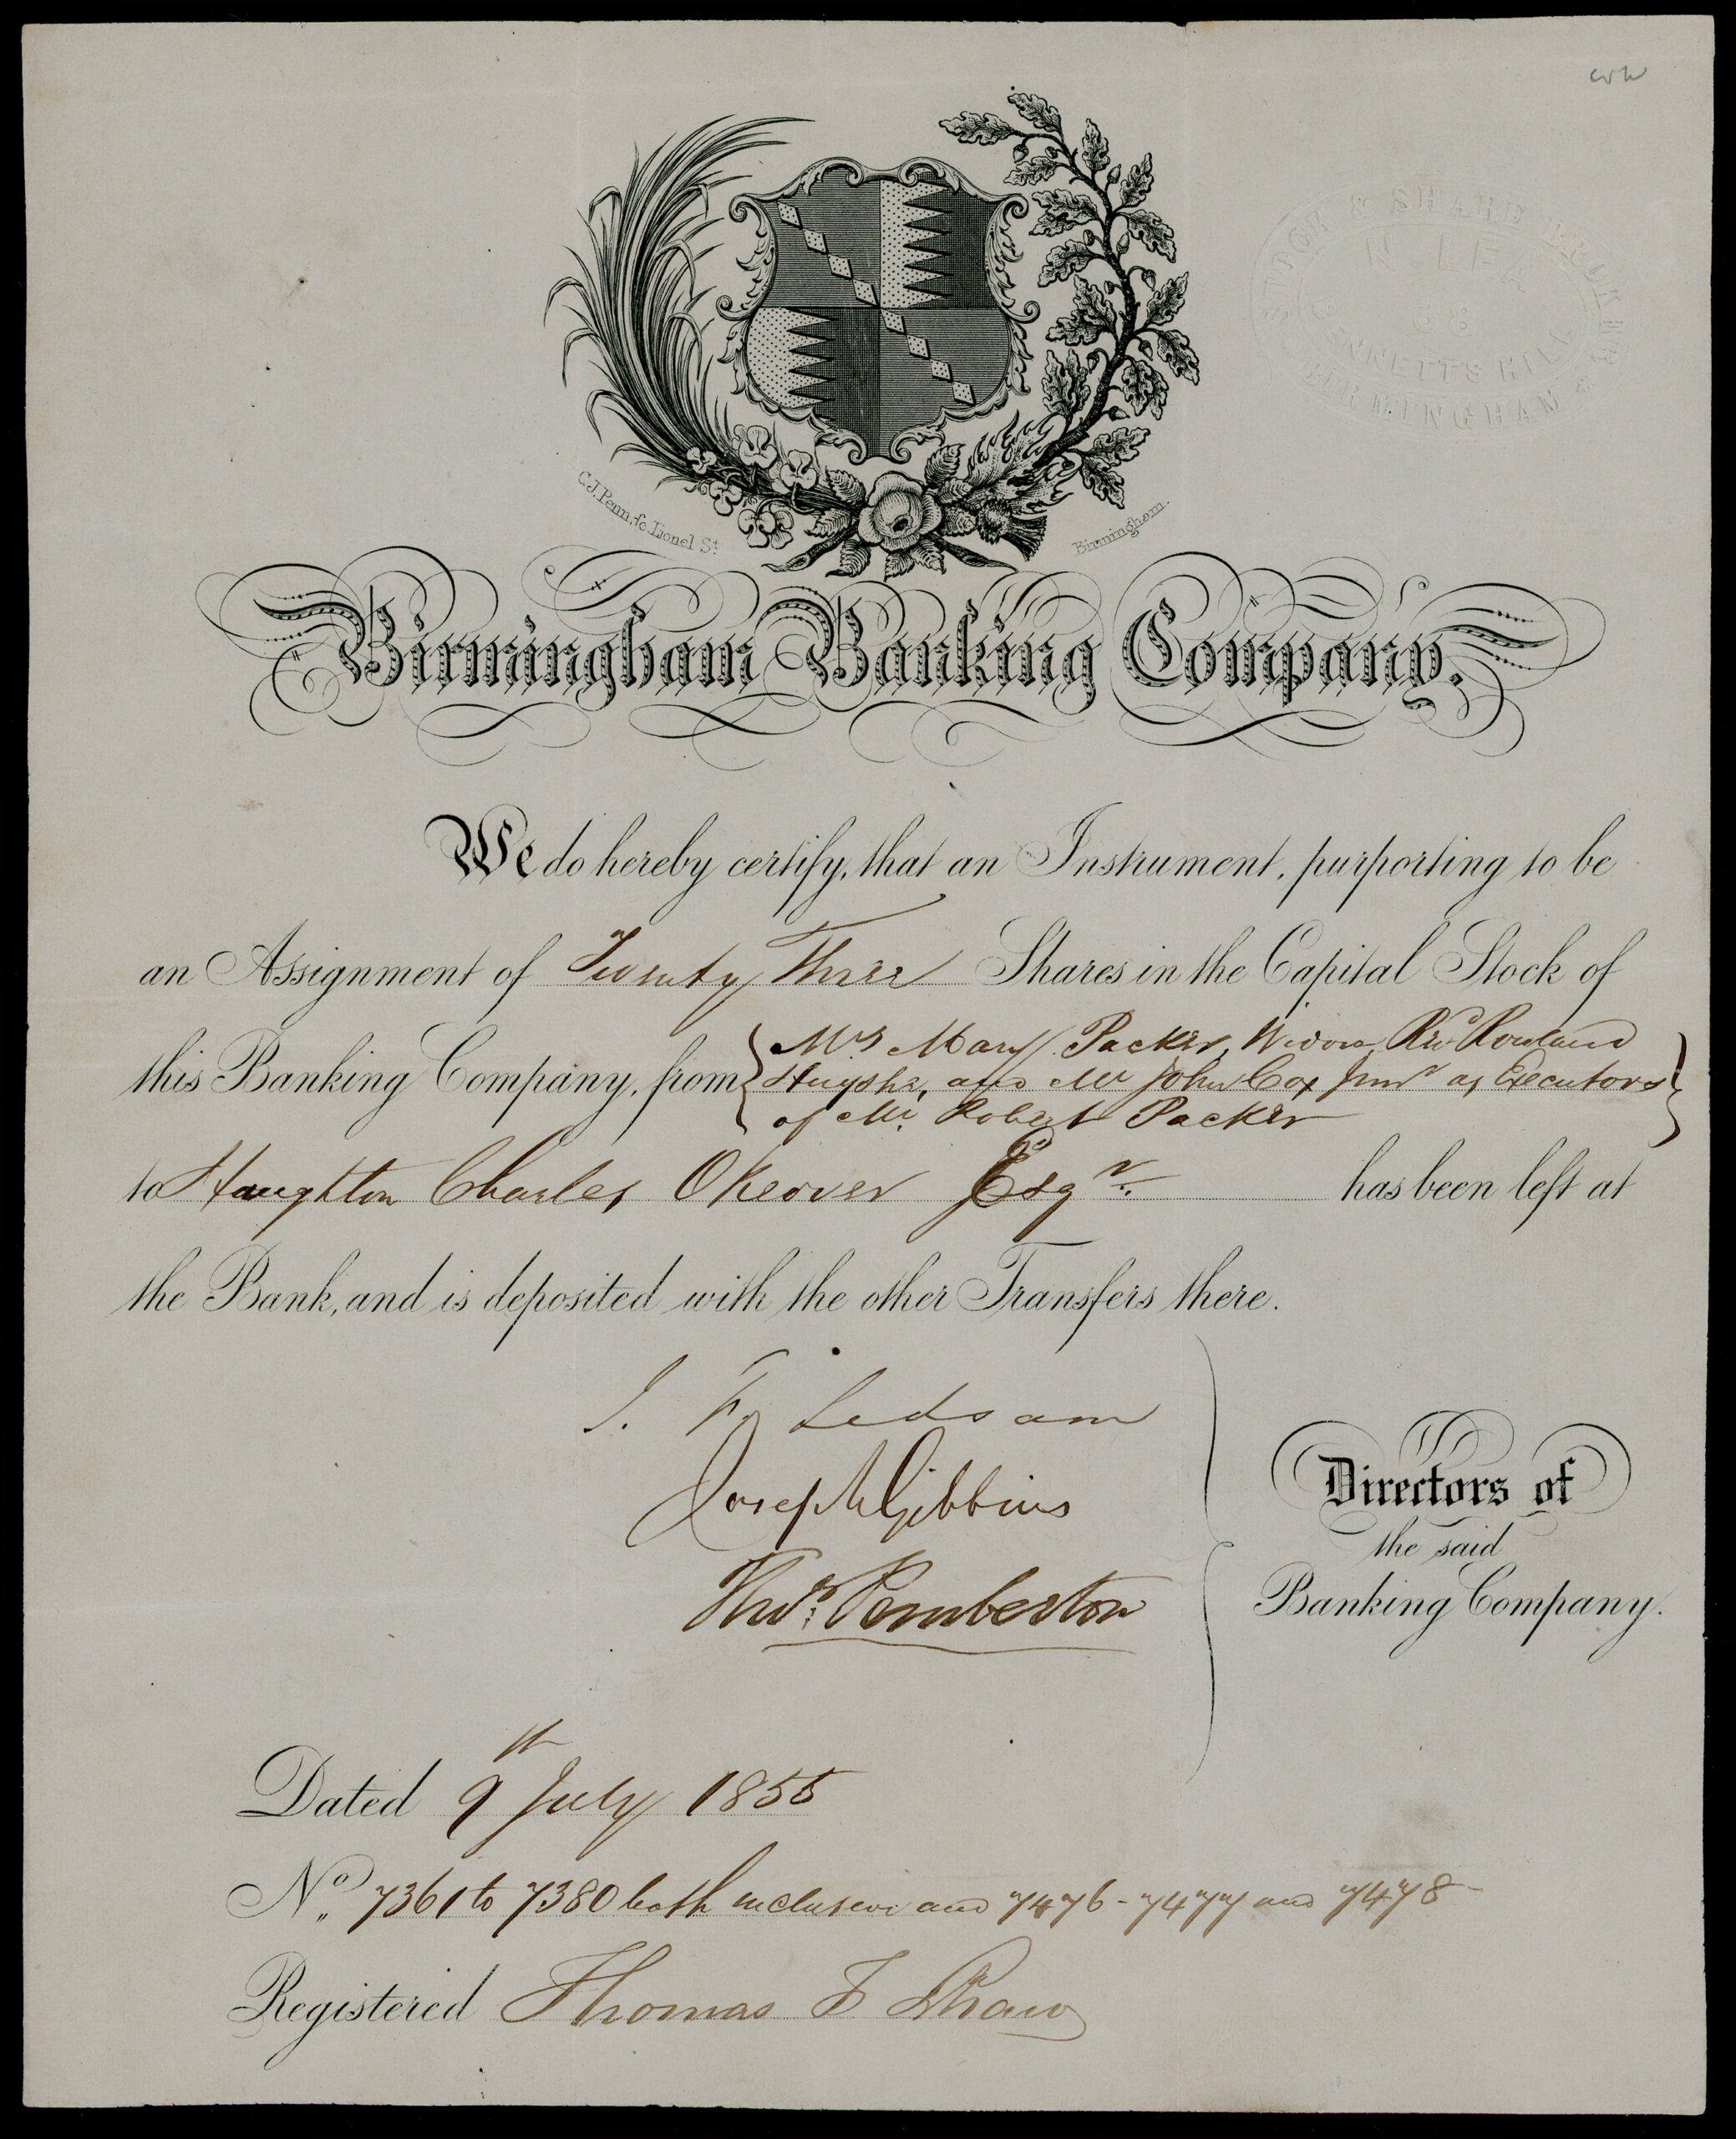 STOCK & SHARE BROKERS
BENNETTS HILL
BIRMINGHAM
C.J. Penn, sc. Lionel St.
Birmingham.
Birmingham Banking Company.
We do hereby certify, that an Instrument, purporting to be
an Assignment of Twenty Three Shares in the Capital Stock of
this Banking Company, from { Mrs. Mary Packer, Widow, Revd Rowland
Huyshe, and Mr John Cox Junr as Executors }
of Mr. Robert Packer
to Haughton Charles Okeover Esqr. has been left at
the Bank, and is deposited with the other Transfers there.
J. F. Ledsam
Joseph Gibbins
Thos. Pemberton
Directors of
the said
Banking Company.
Dated 9th July 1855
No. 7361 to 7380 both inclusive and 7476 - 7477 and 7478
Registered Thomas F Shaw